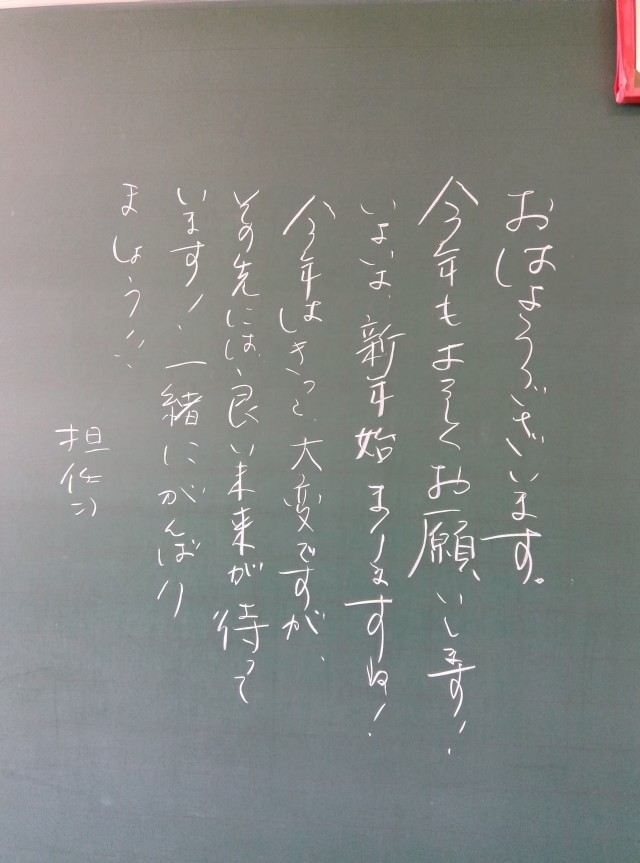 おはようございます。
今年もよろしくお願いします！
いよいよ、新年始まりますね！
今年はきっと、大変ですが、
その先には、良い未来が待って
います！、一緒にがんばり
ましょう！！
担任より